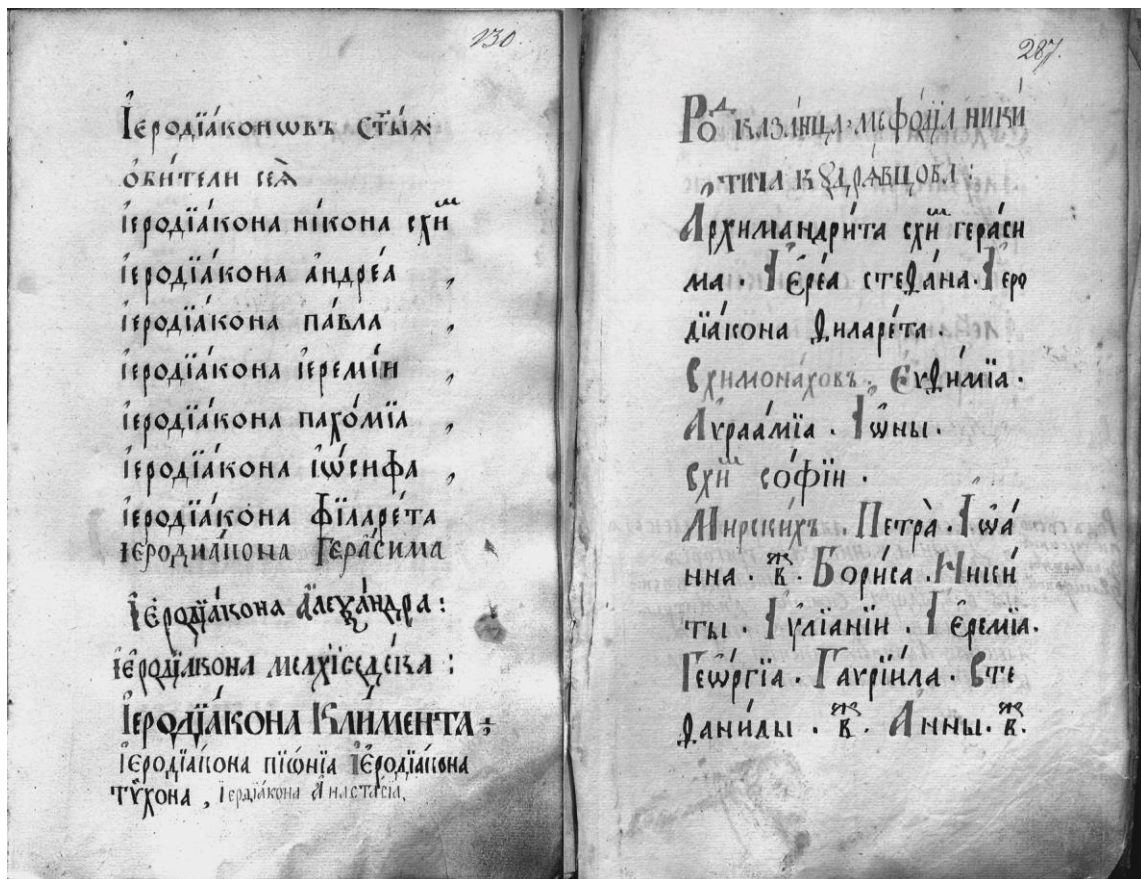 130.
Іеродїа́конѡвъ ст҃ы́ѧ
ѻби́тели сеѧ̀
іеродїа́кона ні́кона схи́ⷨ
іеродїа́кона а҆ндре́а ,
іеродїа́кона па́вла ,
іеродїа́кона іеремі́и ,
іеродїа́кона пахо́мїа ,
іеродїа́кона іѡ́сифа ,
іеродїа́кона фїларе́та
іеродиакона Гера́сима
Іеродїа́кона Алеѯа́ндра :
іеродїакона мелхїседе́ка :
Іеродїа́кона Кли́мента :
іеродїа́кона пїѡ́нїа іеродїа́кона
тѷхона , іердїакона Анастасїа,
287.
Роⷣ каза́нца, меѳо́дїа ники́
тича кꙋдрѧ́вцова :
Архимандри́та схи́ⷨ гера́си
ма . Іере́а стефа́на . Іеро
дїа́кона филаре́та .
Схимона́ховъ . Еѵфи́мїа .
Аѵраа́мїа . Іѡ́ны .
схи́ⷨ софі́и .
Мирски́хъ . Петра̀ . Іѡа́
нна . в҃ⷤ . Бори́са . Ники́
ты . Іѵлїані́и . Іеремі́а .
Геѡ́ргїа . Гаврїи́ла . Сте
фани́ды . в҃ⷤ . А́нны . в҃ⷤ .